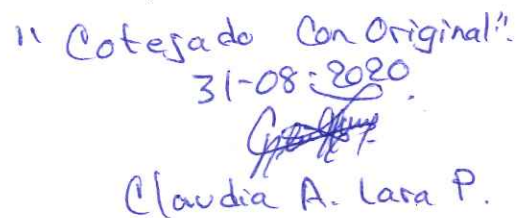 "Cotejado Con Original".
31-08-2020.
Claudia A. Lara P.